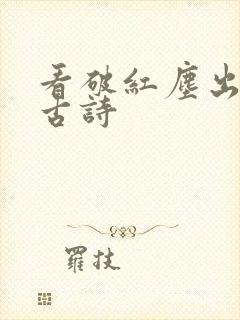 看破紅塵出
古詩
羅技